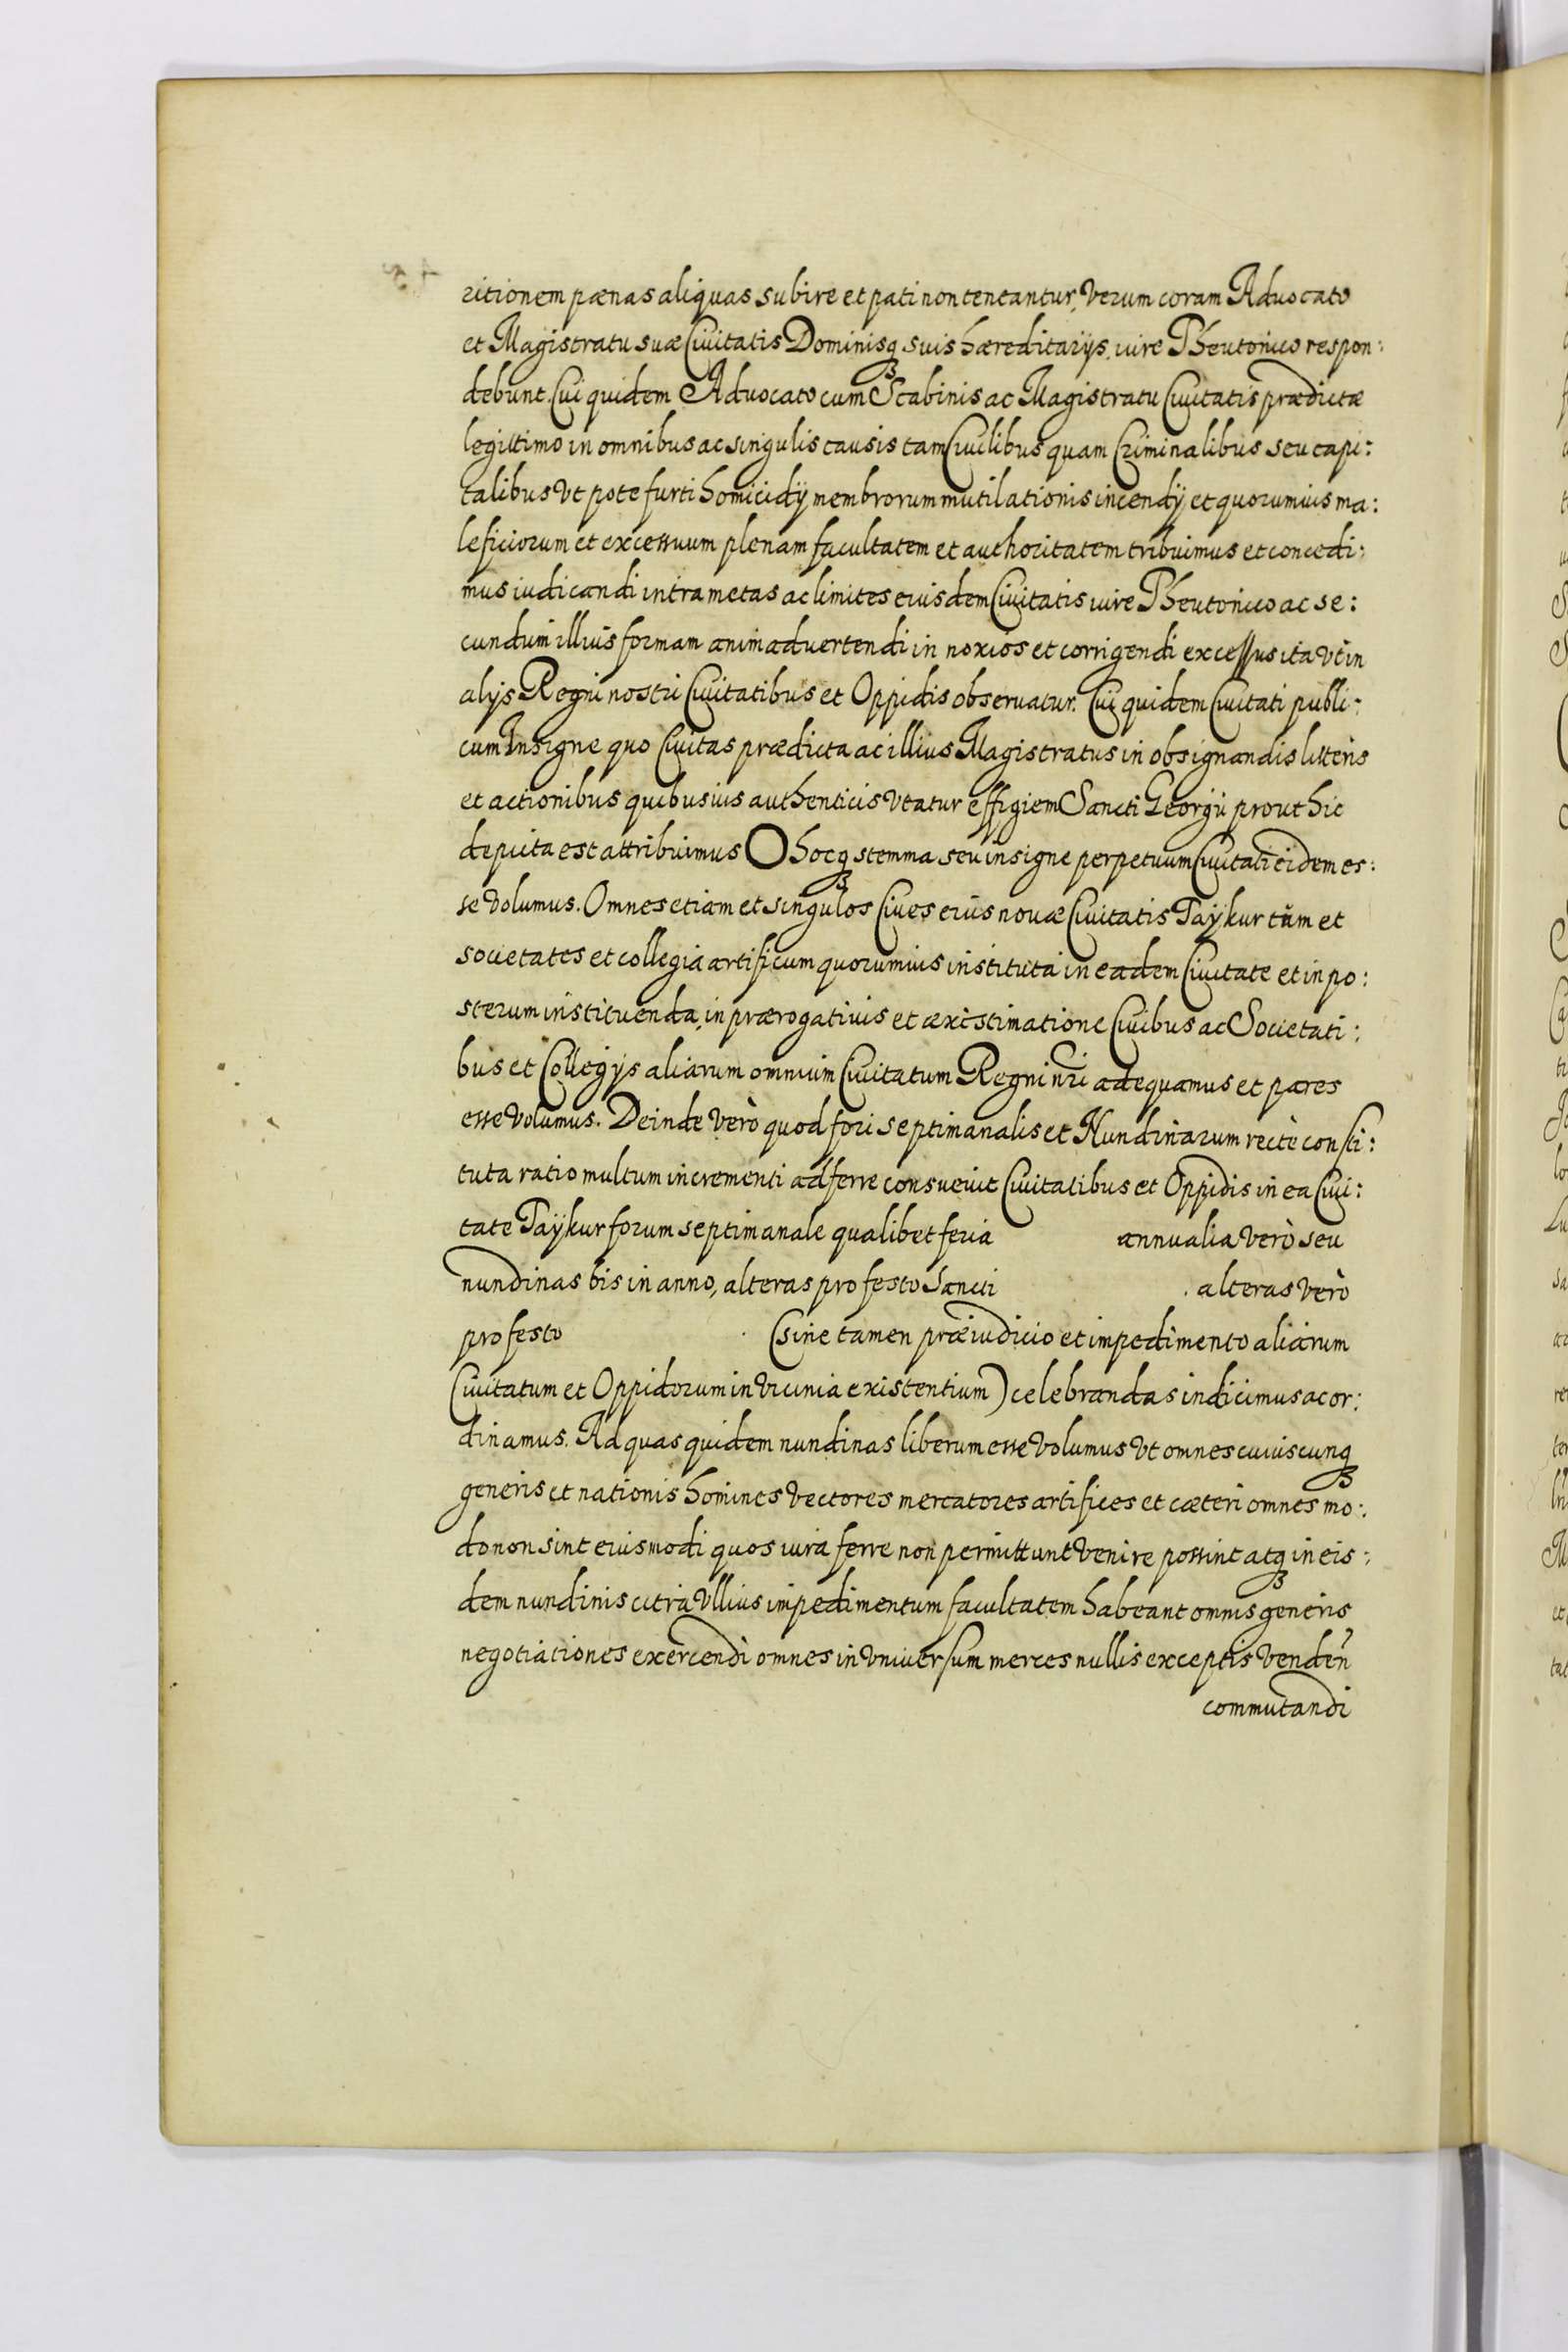 ritionem pænas aliquas subire et pati non teneantur, Verum coram Aduocato
et Magistratu suæ Ciuitatis Dominisqȝ suis hæreditarijs, iure Theutonico respon:
debunt. Cui quidem Aduocato cum Scabinis ac Magistratu Ciuitatis prædictæ
legittimo in omnibus ac singulis causis tam Ciuilibus quam Criminalibus seu capi:
talibus Vt pote furti homicidÿ membrorum mutilationis incendÿ et quorumuis ma:
leficiorum et excessuum plenam facultatem et authoritatem tribuimus et concedi:
mus iudicandi intra metas ac limites eiusdem Ciuitatis iure Theutonico ac se:
cundum illius formam animaduertendi in noxios et corrigendi excessus ita Vt in
alijs Regni nostri Ciuitatibus et Oppidis obseruatur. Cui quidem Ciuitati publi:
cum Insigne quo Ciuitas prædicta ac illius Magistratus in obsignandis litteris
et actionibus quibusuis authenticis Vtatur effigiem Sancti Georgii prout hic
depicta est attribuimus O hocqȝ stemma seu insigne perpetuum Ciuitati eidem es:
se Volumus. Omnes etiam et singulos Ciues eius nouæ Ciuitatis Taÿkur tũm et
societates et collegia artificum quorumuis instituta in eadem Ciuitate et in po:
sterum instituenda, in prærogatiuis et æxistimatione Ciuibus ac Societati:
bus et Collegijs aliarum omnium Ciuitatum Regni nri adequamus et pares
esse Volumus. Deinde Verò quod fori septimanalis et Nundinarum rectè consti:
tuta ratio multum incrementi adferre consueuit Ciuitatibus et Oppidis in ea Ciui:
tate Taÿkur forum septimanale qualibet feria annualia Verò seu
nundinas bis in anno, alteras pro festo Sancti alteras Verò
pro festo (sine tamen præiudicio et impedimento aliarum
Ciuitatum et Oppidorum in Vicinia existentium) celebrandas indicimus ac or:
dinamus. Ad quas quidem nundinas liberum esse Volumus Vt omnes cuiuscunqȝ
generis et nationis homines Vectores mercatores artifices et cæteri omnes mo:
do non sint eiusmodi quos iura ferre non permittunt Venire possint atqȝ in eis:
dem nundinis citra Vllius impedimentum facultatem habeant omnis generis
negotiationes exercendi omnes in Vniuersum merces nullis exceptis Venden̄
commutandi